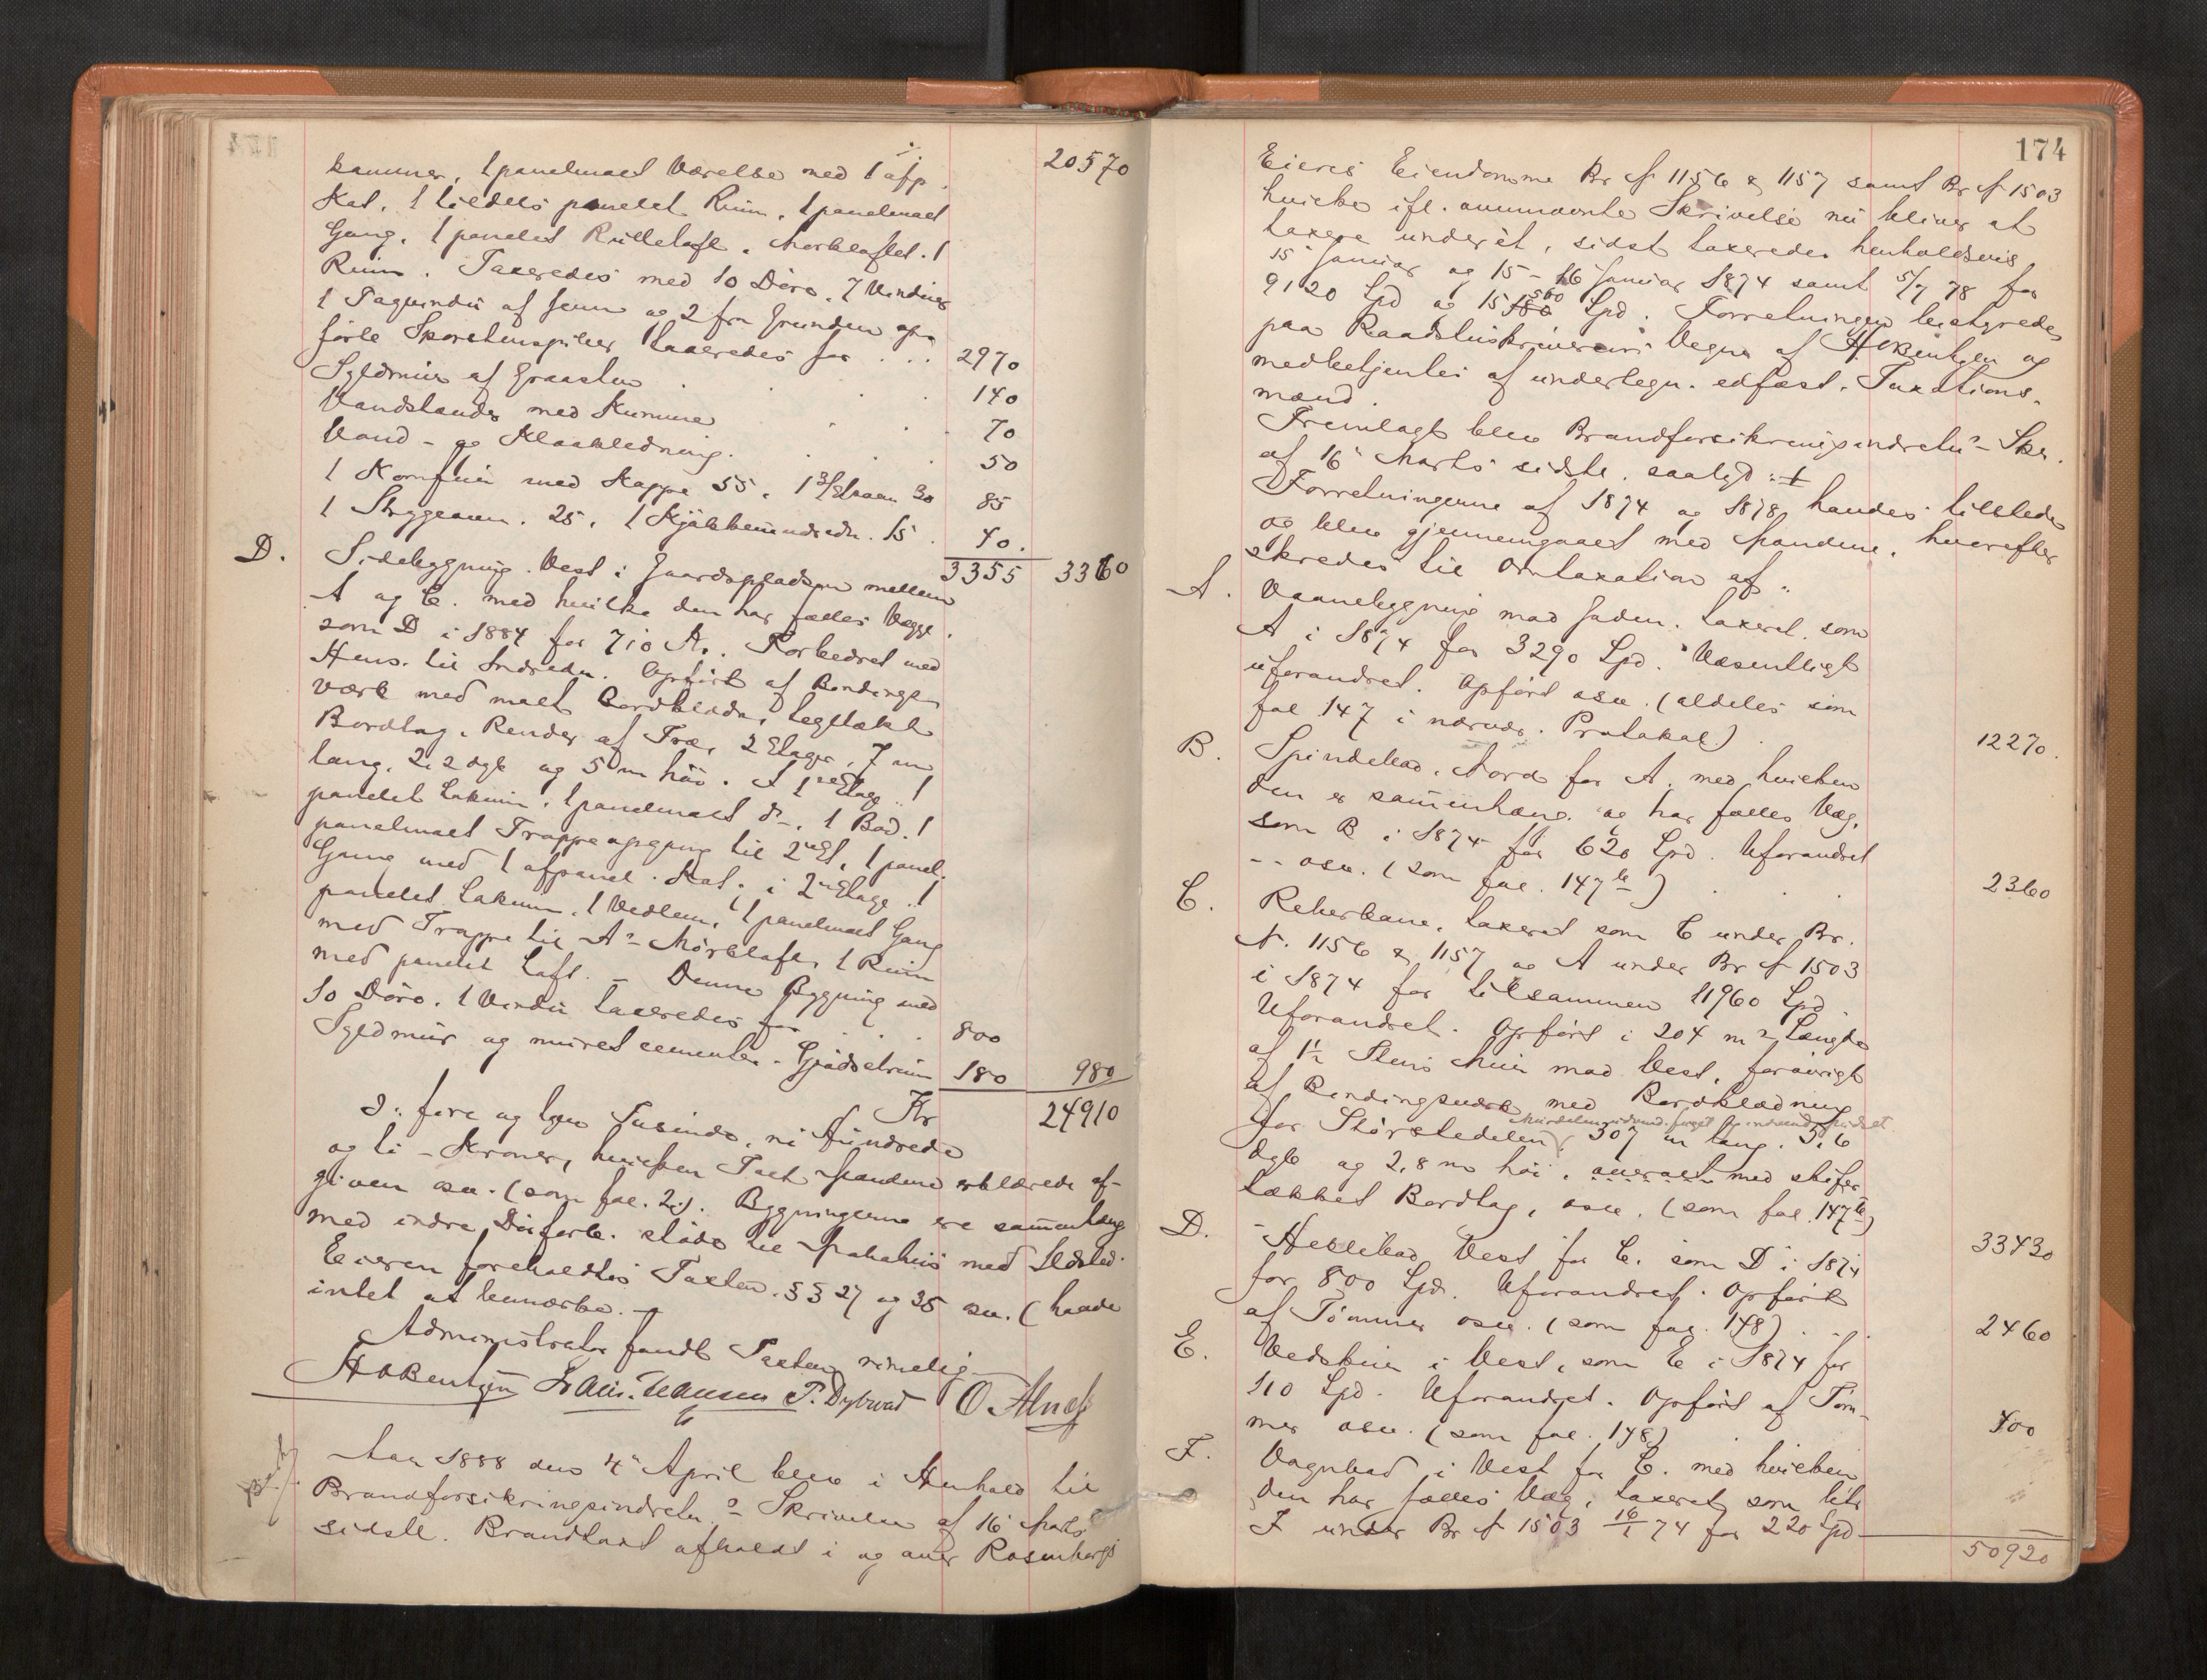 20570
kammer, 1 panelmalt Værelse med 1 afp.
Kat, 1 tildels panelet Rum, 1 panelmalt
Gang, 1 panelet Rulleloft. Mørkloftet. 1
Rum. Taxeredes med 10 Döre, 7 Vinduer
1 Tagvindu af Jern og 2 fra Grunden op-
førte Skorstenspiber taxeredes for . . . 2970
Syldmur af Graasten . . . 140
Vandstænder med Kumme . . . 70
Vand- og Kloakledning . . . 50
1 Komfur med Kappe 55, 1 3/Etasers 30 85
1 Strygeovn. 25, 1 Kjökkenindredn. 15 . 40.
3355 3360
D. Sidebygning Vest i Gaardspladsen mellem
A og C. med hvilke den har fælles Vægge.
som D i 1884 for 710 Kr. Forbedret med
Hens. til Indredn. Opført af Bindings-
værk med malt Bordklædn, tegltækt
Bordtag, Render af Træ, 2 Etager, 7 m
lang, 2,2 dyb og 5 m höi. I 1ste Etage: 1
panelet Lokum, 1 panelmalt do, 1 Bod, 1
panelmalt Trappeopgang til 2den Et, 1 panel.
Gang med 1 afpanel. Kat; i 2den Etage: 1
panelet Lokum, 1 Vedlem, 1 panelmalt Gang
med Trappe til A's Mörkloft, 1 Rum
med panelet Loft. – Denne Bygning med
10 Döre, 1 Vindu taxeredes for . . . 800
Syldmur og muret cementer. Gjödselrum 180 980
Kr 24910
ɔ: fire og tyve Tusinde, ni Hundrede
og ti – Kroner, hvilken Taxt Mændene erklærede af-
given osv. (som fol. 2). Bygningerne ere sammenhæng
med indre Dörforb. stöde til Nabohus med Ildsted.
Eieren foreholdtes Taxten, §§ 27 og 35 osv. (havde
intet at bemærke. –
Administrator fandt Taxten rimelig
HABentzen Laur. Hansen P. Dybwad O. Alnæs
Aar 1888 den 4de April blev i Henhold til
Brandforsikringsindretn.s Skrivelse af 16 Marts
sidstl. Brandtaxt afholdt i og over Rosenborgs
174
Eieres Eiendomme Br N 1156 & 1157 samt Br N 1503
hvilke ifl. ovennævnte Skrivelse nu bliver at
taxere underét, sidst taxeredes henholdsvis
15 Januar og 15 – 16 Januar 1874 samt 5/7 78 for
9120 Spd og 15560 Spd. Forretningen bestyredes
paa Raadstuskriverens Vegne af HABentzen og
medbetjentes af underlegn. edfæst. Taxations-
mænd.
Fremlagt blev Brandforsikringsindretn.s Skr.
af 16 Marts sidstl. saalyd: ./.
Forretningerne af 1874 og 1878 havdes tilstede
og blev gjennemgaaet med Mændene, hvorefter
skredes til Omtaxation af:
A. Vaanebygning mod Gaden. taxeret som
A i 1874 for 3290 Spd. Væsentligt
uforandret. Opført osv. (aldeles som
fol 147 i nærvær. Protokol) . 12270.
B. Spindebod, Nord for A. med hvilken
den er sammenhæng. og har fælles Væg,
som B i 1874 for 620 Spd. Uforandret
-- osv. (som fol. 147 b) . . . 2360
C. Reberbane, taxeret som C under Br.
N. 1156 & 1157 og A under Br N 1503
i 1874 for tilsammen 11960 Spd.
Uforandret. Opført i 204 m's Længde
af 1½ Stens Mur mod Vest, forövrigt
af Bindingsværk med Bordklædning
for Störstedelen, 307 m lang, 5,6
dyb og 2,8 m höi, overalt med skifer
tækket Bordtag, osv. (som fol. 147 b) 33430
D. Heklebod, Vest for C. som D i 1874
for 800 Spd. Uforandret. Opført
af Tömmer osv. (som fol. 148) . . 2460
E. Vedskur i Vest, som E i 1874 for
110 Spd. Uforandret. Opført af Töm-
mer osv. (som fol. 148) 400
F. Vognbod i Vest for C. med hvilken
den har fælles Væg, taxeret som litr
F under Br N 1503 16/1 74 for 220 Spd
50920